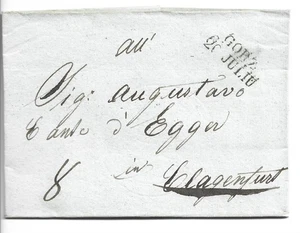 GÖRZ
26 JULIO
an
Sig: Augustavo
Conte d'Egger
in
Clagenfurt
8